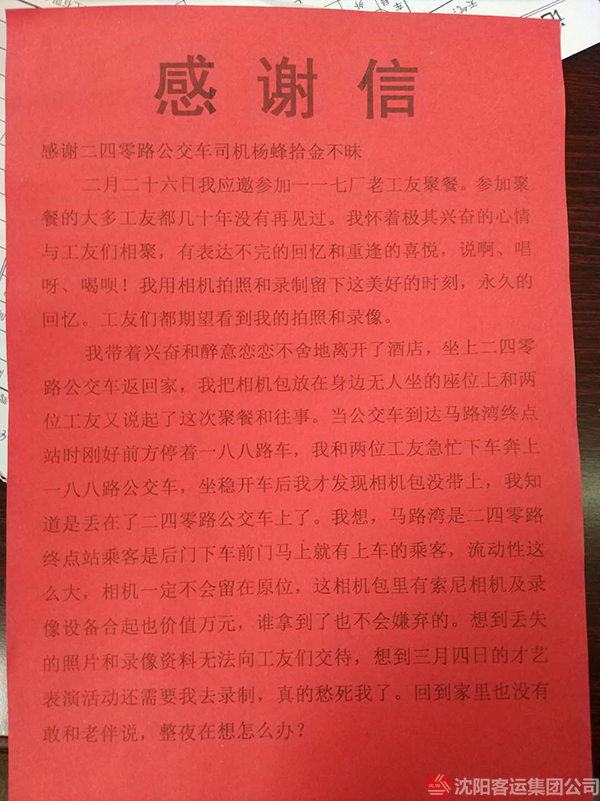 感谢信
感谢二四零路公交车司机杨蜂拾金不昧
二月二十六日我应邀参加一一七厂老工友聚餐。参加聚
餐的大多工友都几十年没有再见过。我怀着极其兴奋的心情
与工友们相聚，有表达不完的回忆和重逢的喜悦，说啊、唱
呀、喝呗！我用相机拍照和录制留下这美好的时刻，永久的
回忆。工友们都期望看到我的拍照和录像。
我带着兴奋和醉意恋恋不舍地离开了酒店，坐上二四零
路公交车返回家，我把相机包放在身边无人坐的座位上和两
位工友又说起了这次聚餐和往事。当公交车到达马路湾终点
站时刚好前方停着一八八路车，我和两位工友急忙下车奔上
一八八路公交车，坐稳开车后我才发现相机包没带上，我知
道是丢在了二四零路公交车上了。我想，马路湾是二四零路
终点站乘客是后门下车前门马上就有上车的乘客，流动性这
么大，相机一定不会留在原位，这相机包里有索尼相机及录
像设备合起也价值万元，谁拿到了也不会嫌弃的。想到丢失
的照片和录像资料无法向工友们交待，想到三月四日的才艺
表演活动还需要我去录制，真的愁死我了。回到家里也没有
敢和老伴说，整夜在想怎么办？
沈阳客运集团公司